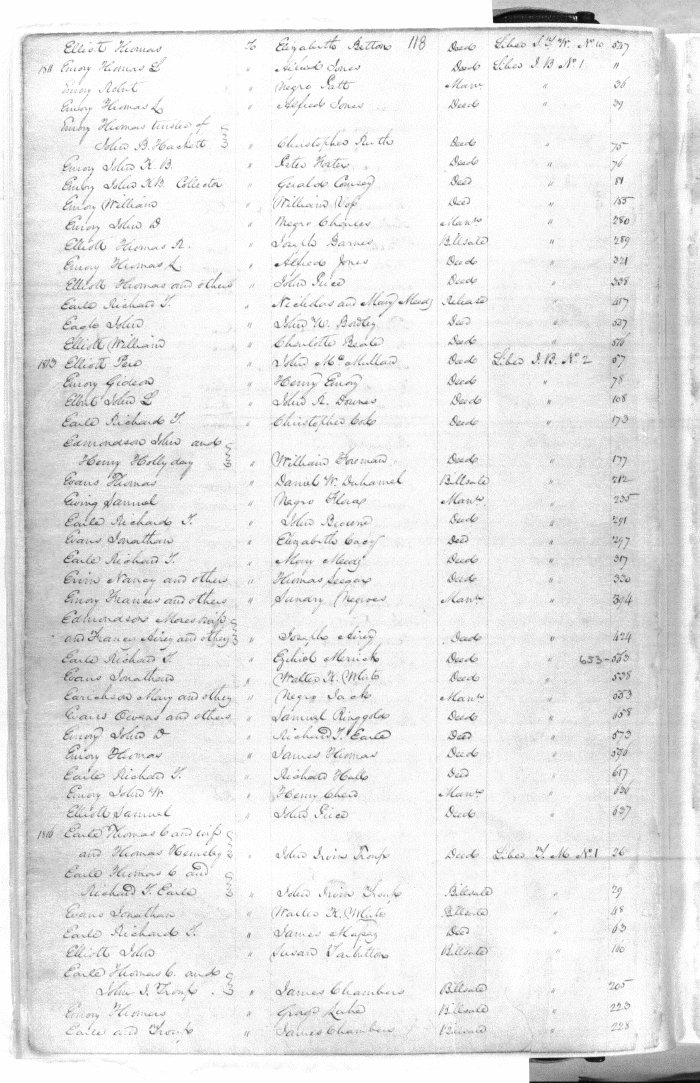 118
Elliott Thomas To Elizabeth Betton Deed Liber J. T. W. No 10 547
1811 Emory Thomas L " Alfred Jones Deed Liber J. B. No 1 11
Emory Robert " Negro Patt Manu " 36
Emory Thomas L " Alfred Jones Deed " 39
Emory Thomas trustee of
John B. Hackett " Christopher Ruth Deed " 75
Emory John K. B. " Peter Deed " 76
Emory John K B. Collector " Gerald Coursey Deed " 81
Emory William " William Deed " 185
Emory John D " Negro Charles Manu " 280
Elliott Thomas R. " Joseph Barnes Billsale " 289
Emory Thomas L " Alfred Jones Deed " 321
Elliott Thomas and others " John Price Deed " 338
Earle Richard T. " Nicholas and Mary Meeds Release " 417
Eagle John " John K. Bowley Deed " 527
Elliott William " Charlotte Beale Deed " 576
1813 Elliott " John Mc Mullan Deed Liber J. B. No. 2 57
Emory Gideon " Henry Emory Deed " 78
Elbert John L " John R. Downes Deed " 108
Earle Richard T. " Christopher Cox Deed " 173
Edmondson John and
Henry Hollyday " William Deed " 177
Evans Thomas " Daniel W. Duhamel Billsale " 212
Ewing Samuel " Negro Flora Manu " 235
Earle Richard T. " John Browne Deed " 291
Evans Jonathan " Elizabeth Deed " 297
Earle Richard T. " Mary Meeds Deed " 317
Ervin Nancy and others " Thomas Seegar Deed " 330
Emory Frances and others " Sundry Negroes Manu " 394
Edmondson wife
and Francis Airey and others " Joseph Airey Deed " 424
Earle Richard T. " Ezekiel Merrick Deed " 653-563
Evans Jonathan " Walter K. Deed " 538
Earickson Mary and others " Negro Jack Manu " 553
Evans Owens and others " Samuel Ringgold Deed " 658
Emory John D " Richard T. Earle Deed " 573
Emory Thomas " James Thomas Deed " 596
Earle Richard T. " Richard Hall Deed " 617
Emory John W. " Henry Chew Manu " 636
Elliott Samuel " John Price Deed " 637
1816 Earle Thomas C and wife
and Thomas Hemsley " John Irvin Troup Deed Liber T. M. No 1 26
Earle Thomas C and
Richard T. Earle " John Irvin Troup Billsale " 29
Evans Jonathan " Walter K. Billsale " 48
Earle Richard T. " James Massey Deed " 63
Elliott John " Susan Tarbutton Billsale " 160
Earle Thomas C. and
John I. Troup " James Chambers Billsale " 205
Emory Thomas " George Lake Billsale " 223
Earle and Troup " James Chambers Billsale " 228